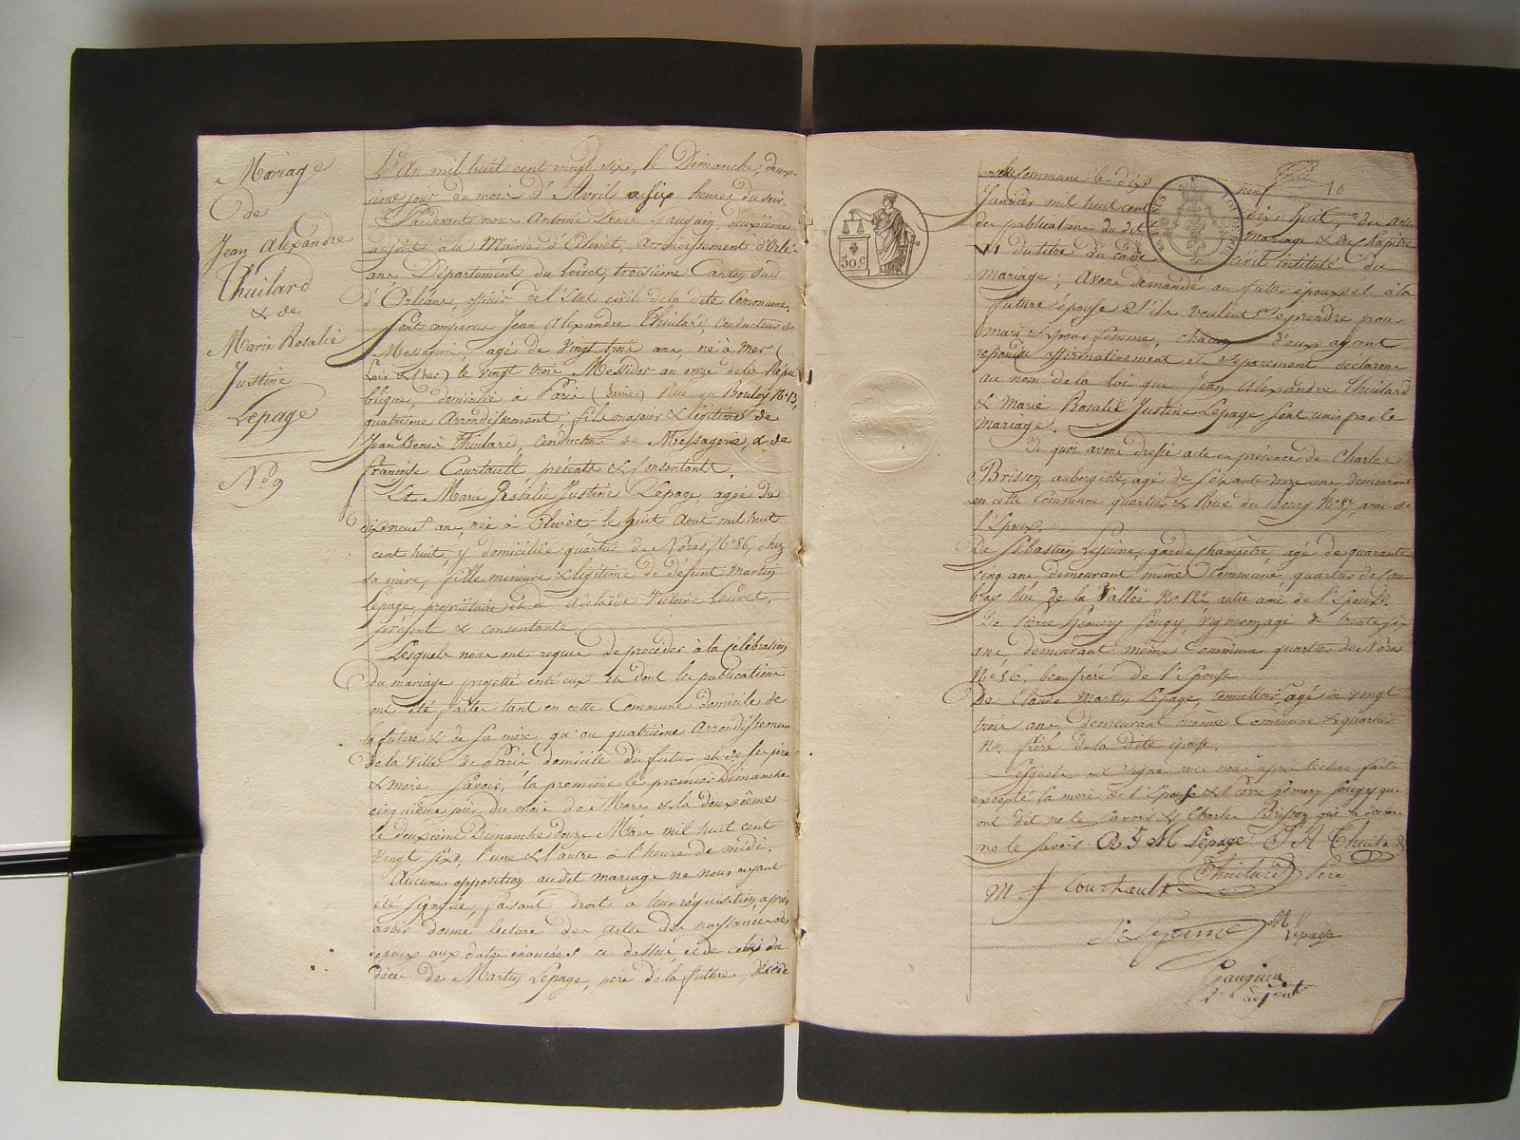 Mariage
de
Jean Alexandre
Thuilard
& de
Marie Rosalie
Justine
Lepage
N.o 9
L'An mil huit cent vingt six, le Dimanche, deux-
ième jour du mois d'Avril à six heures du soir.
Pardevant nous Antoine Gauguin, deuxième
adjoint à la Mairie d'Olivet, Arrondissement d'Orlé-
ans Département du Loiret, troisième Canton Sud
d'Orléans, officier de l'Etat civil de la dite Commune,
Sont comparus Jean Alexandre Thuilard, conducteur de
Messageries, agé de vingt trois ans, né à Mer
Loir & Cher) le vingt trois Messidor an onze de la Répu
blique, domicilié à Paris (Seine) Rue du Bouloy N.o 13,
quatrième Arrondissement, fils majeur & légitime de
Jean Denis Thuilard, conducteur de Messageries, & de
Françoise Courtault présents & consentants.
Et Marie Rosalie Justine Lepage, agée de
dixneuf ans, née à Olivet le huit Aout mil huit
cent huit, y domiciliée quartier de N.o 56, chez
sa mère, fille mineure & légitime de défunt Martin
Lepage, propriétaire et de Victoire
présent & consentante.
Lesquels nous ont requis de procéder à la célébration
du mariage projetté entr'eux et dont les publications
ont été faites tant en cette Commune domicile de
la future & de sa mère, qu'au quatrième Arrondissement
de la Ville de Paris domicile du futur et de ses père
& mère Savoir, la première le premier Dimanche
cinquième jour du mois de Mars & la deuxième
le deuxième Dimanche douze Mars mil huit cent
vingt six, l'une & l'autre à l'heure de midi.
Aucune opposition audit mariage ne nous ayant
été signifiée, faisant droit à leur réquisition, après
avoir donné lecture des actes de naissance des
époux aux dates énoncées ci dessus et de celui du
décès de Martin Lepage, père de la future, décédé
en cette commune le dix neuf
Janvier mil huit cent dix huit, des actes
de publications du dit mariage & du chapitre
VI du titre du code civil intitulé du
mariage; Avons demandé au futur époux et à la
future épouse s'ils veulent se prendre pour
mari & pour femme, chacun d'eux ayant
répondu affirmativement et séparément déclarons
au nom de la loi que Jean Alexandre Thuilard
& Marie Rosalie Justine Lepage sont unis par le
mariage.
De quoi avons dressé acte en présence de Charles
Brisson aubergiste, agé de soixante onze ans demeurant
en cette commune quartier & Rue du Bourg N.o ami de
l'Epoux.
De Sébastien Lejeune, garde champêtre agé de quarante
cinq ans demeurant même Commune, quartier de
bas Rue de la Vallée N.o 122, autre ami de l'Epoux.
De Pierre Gougy, vigneron, agé de trente six
ans demeurant même Commune quartier de
N.o 56, beau frère de l'Epouse
De Claude Martin Lepage, agé de vingt
trois ans, demeurant même Commune & quartier
N.o frère de la dite épouse.
Lesquels ont signé avec nous après lecture faite
excepté la mère de l'Epouse & Pierre Gougy qui
ont dit ne le savoir & Charles Brisson
ne le savoir R J M Lepage J A Thuilard
M F Courtault Thuilard Père
S Lejeune M
Lepage
Gauguin
adjoint
30 C